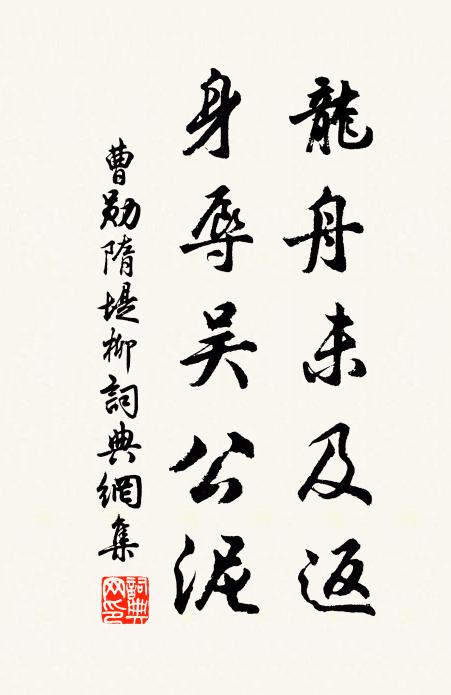 龍舟未及返
身辱吴公泥
曹勛隋堤柳詞典網集
詞典網印